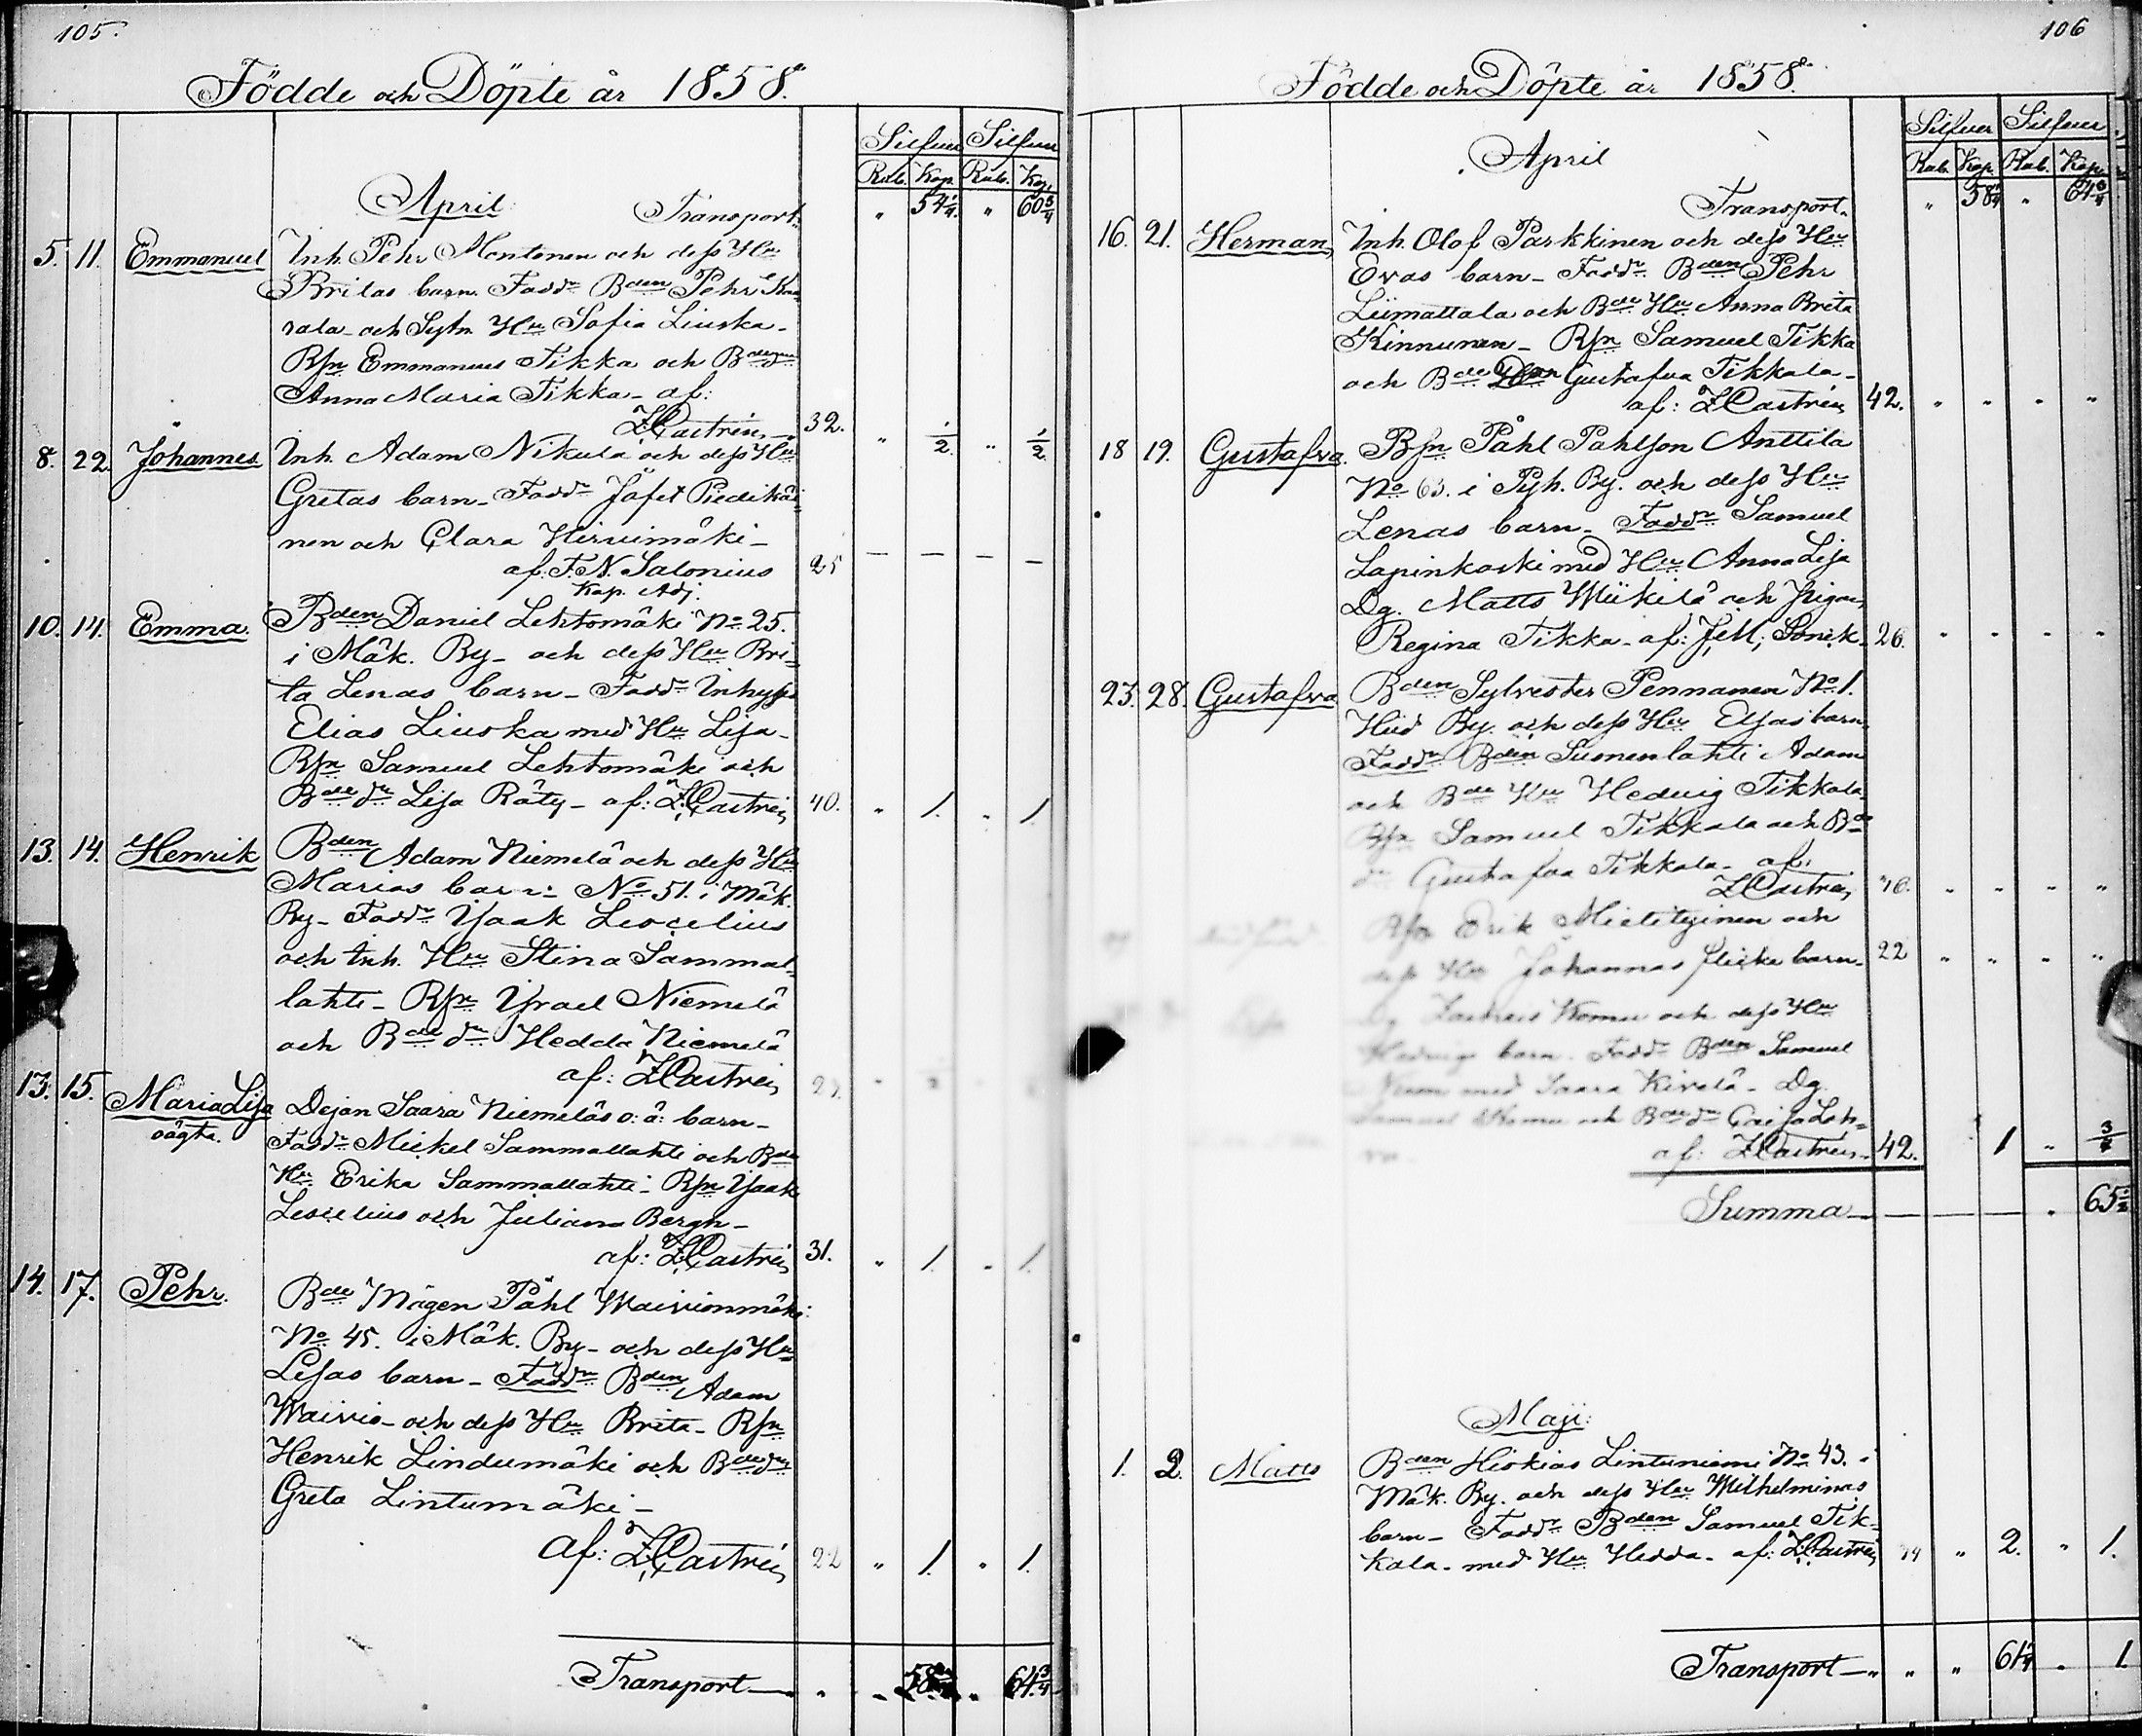 105.
Födde och Döpte år 1858.
Silfver Silfver
Rub. Kop. Rub. Kop.
April
Transport. " 54 1/4. " 60 3/4
5. 11. Emmanuel Inh. Pehr Montonen och dess Hu
Britas barn. Faddr Bden Pehr
rala och Sytn. Hu Sofia Liuska-
Bsn Emmanuel Tikka och
Anna Maria Tikka- af:
ZCastrén 32. " 1/2. " 1/2
8. 22. Johannes Inh. Adam Nikula och dess Hu
Gretas barn- Faddr Jafet Piedikäi
nen och Clara Hirvimäki-
af: F.N. Salonius 25 — — — —
Kap. Adj.
10. 14. Emma. Bden Daniel Lehtomäki No 25.
i Mäk. By- och dess Hu Bri-
ta Lenas barn- Faddr Inhyss
Elias Liuska med Hu Lisa-
Bsn Samuel Lehtomäki och
Bde dr Lisa Räty- af: ZCastrén 40. " 1. " 1.
13. 14. Henrik Bden Adam Niemelä och dess Hu
Marias barn: No 51. i Mäk.
By- Faddr Isaak Leocelius
och Inh. Hu Stina Sammal-
lahti- Bsn Israel Niemelä
och Bde dr Hedda Niemelä
af: ZCastrén
13. 15. Maria Lisa Dejan Saara Niemeläs o: ä: barn-
oägta. Faddr Mickel Sammallahti och Bde
Hu Erika Sammallahti- Bsn Isaak
Leocelius och Juliana Bergh-
af: ZCastrén 31. " 1. " 1.
14. 17. Pehr. Bde Mågen Påhl Waivionmäki:
No 45. i Mäk. By- och dess Hu
Lisas barn- Faddr Bden Adam
Waivio- och dess Hu Brita- Bsn
Henrik Lindumäki och Bde dr
Greta Lintumäki-
af: ZCastrén 22 " 1. " 1.
Transport— " " 58 " 64 3/4
106
Födde och Döpte år 1858.
Silfver Silfver
Rub. Kop. Rub. Kop.
April
Transport. " 58 " 64 3/4
16. 21. Herman Inh. Olof Parkkinen och dess Hu
Evas barn- Faddr Bden Pehr
Liimattala och Bde Hu Anna Brita
Kinnunen- Bsn Samuel Tikka
och Bde Gustafva Tikkala-
af: ZCastrén 42. " " " "
18 19. Gustafva. Bsn Påhl Påhlson Anttila
No 63. i Pyh. By. och dess Hu
Lenas barn- Faddr Samuel
Lapinkoski med Hu Anna Lisa
Dg. Matts Wiikilä och Pigan
Regina Tikka- af: 26. " " " "
23. 28. Gustafva Bden Sylvester Pennanen No 1.
Hud By. och dess Hu Elsas barn
Faddr Bden Suonenlahti Adam
och Bde Hu Hedvig Tikkala
Bsn Samuel Tikkala och Bde
dr Gustafva Tikkala- af:
ZCastrén " " " "
Bsn Erik Mielityinen och
dess Hu Johannas flicke barn- 22 " " " "
Komu och dess Hu
Hedvigs barn. Faddr Bden Samuel
med Saara Kirvelä- Dg.
Samuel Komu och Bde dr Caisa Leh-
af: ZCastrén- 42. 1 "
Summa— 65
Maji:
1. 2. Matts Bden Hiskias Lintuniemi No 43. i
Mäk. By. och dess Hu Wilhelminas
barn- Faddr Bden Samuel Tik-
kala- med Hu Hedda- af: ZCastrén " 2. " 1.
Transport— " " " 61 " 1